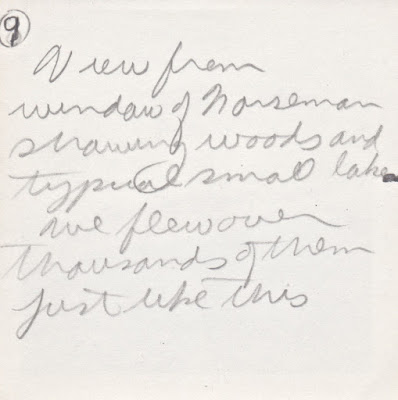 9
View from
window of Norseman
showing woods and
typical small lake
We flew over
thousands of them
just like this